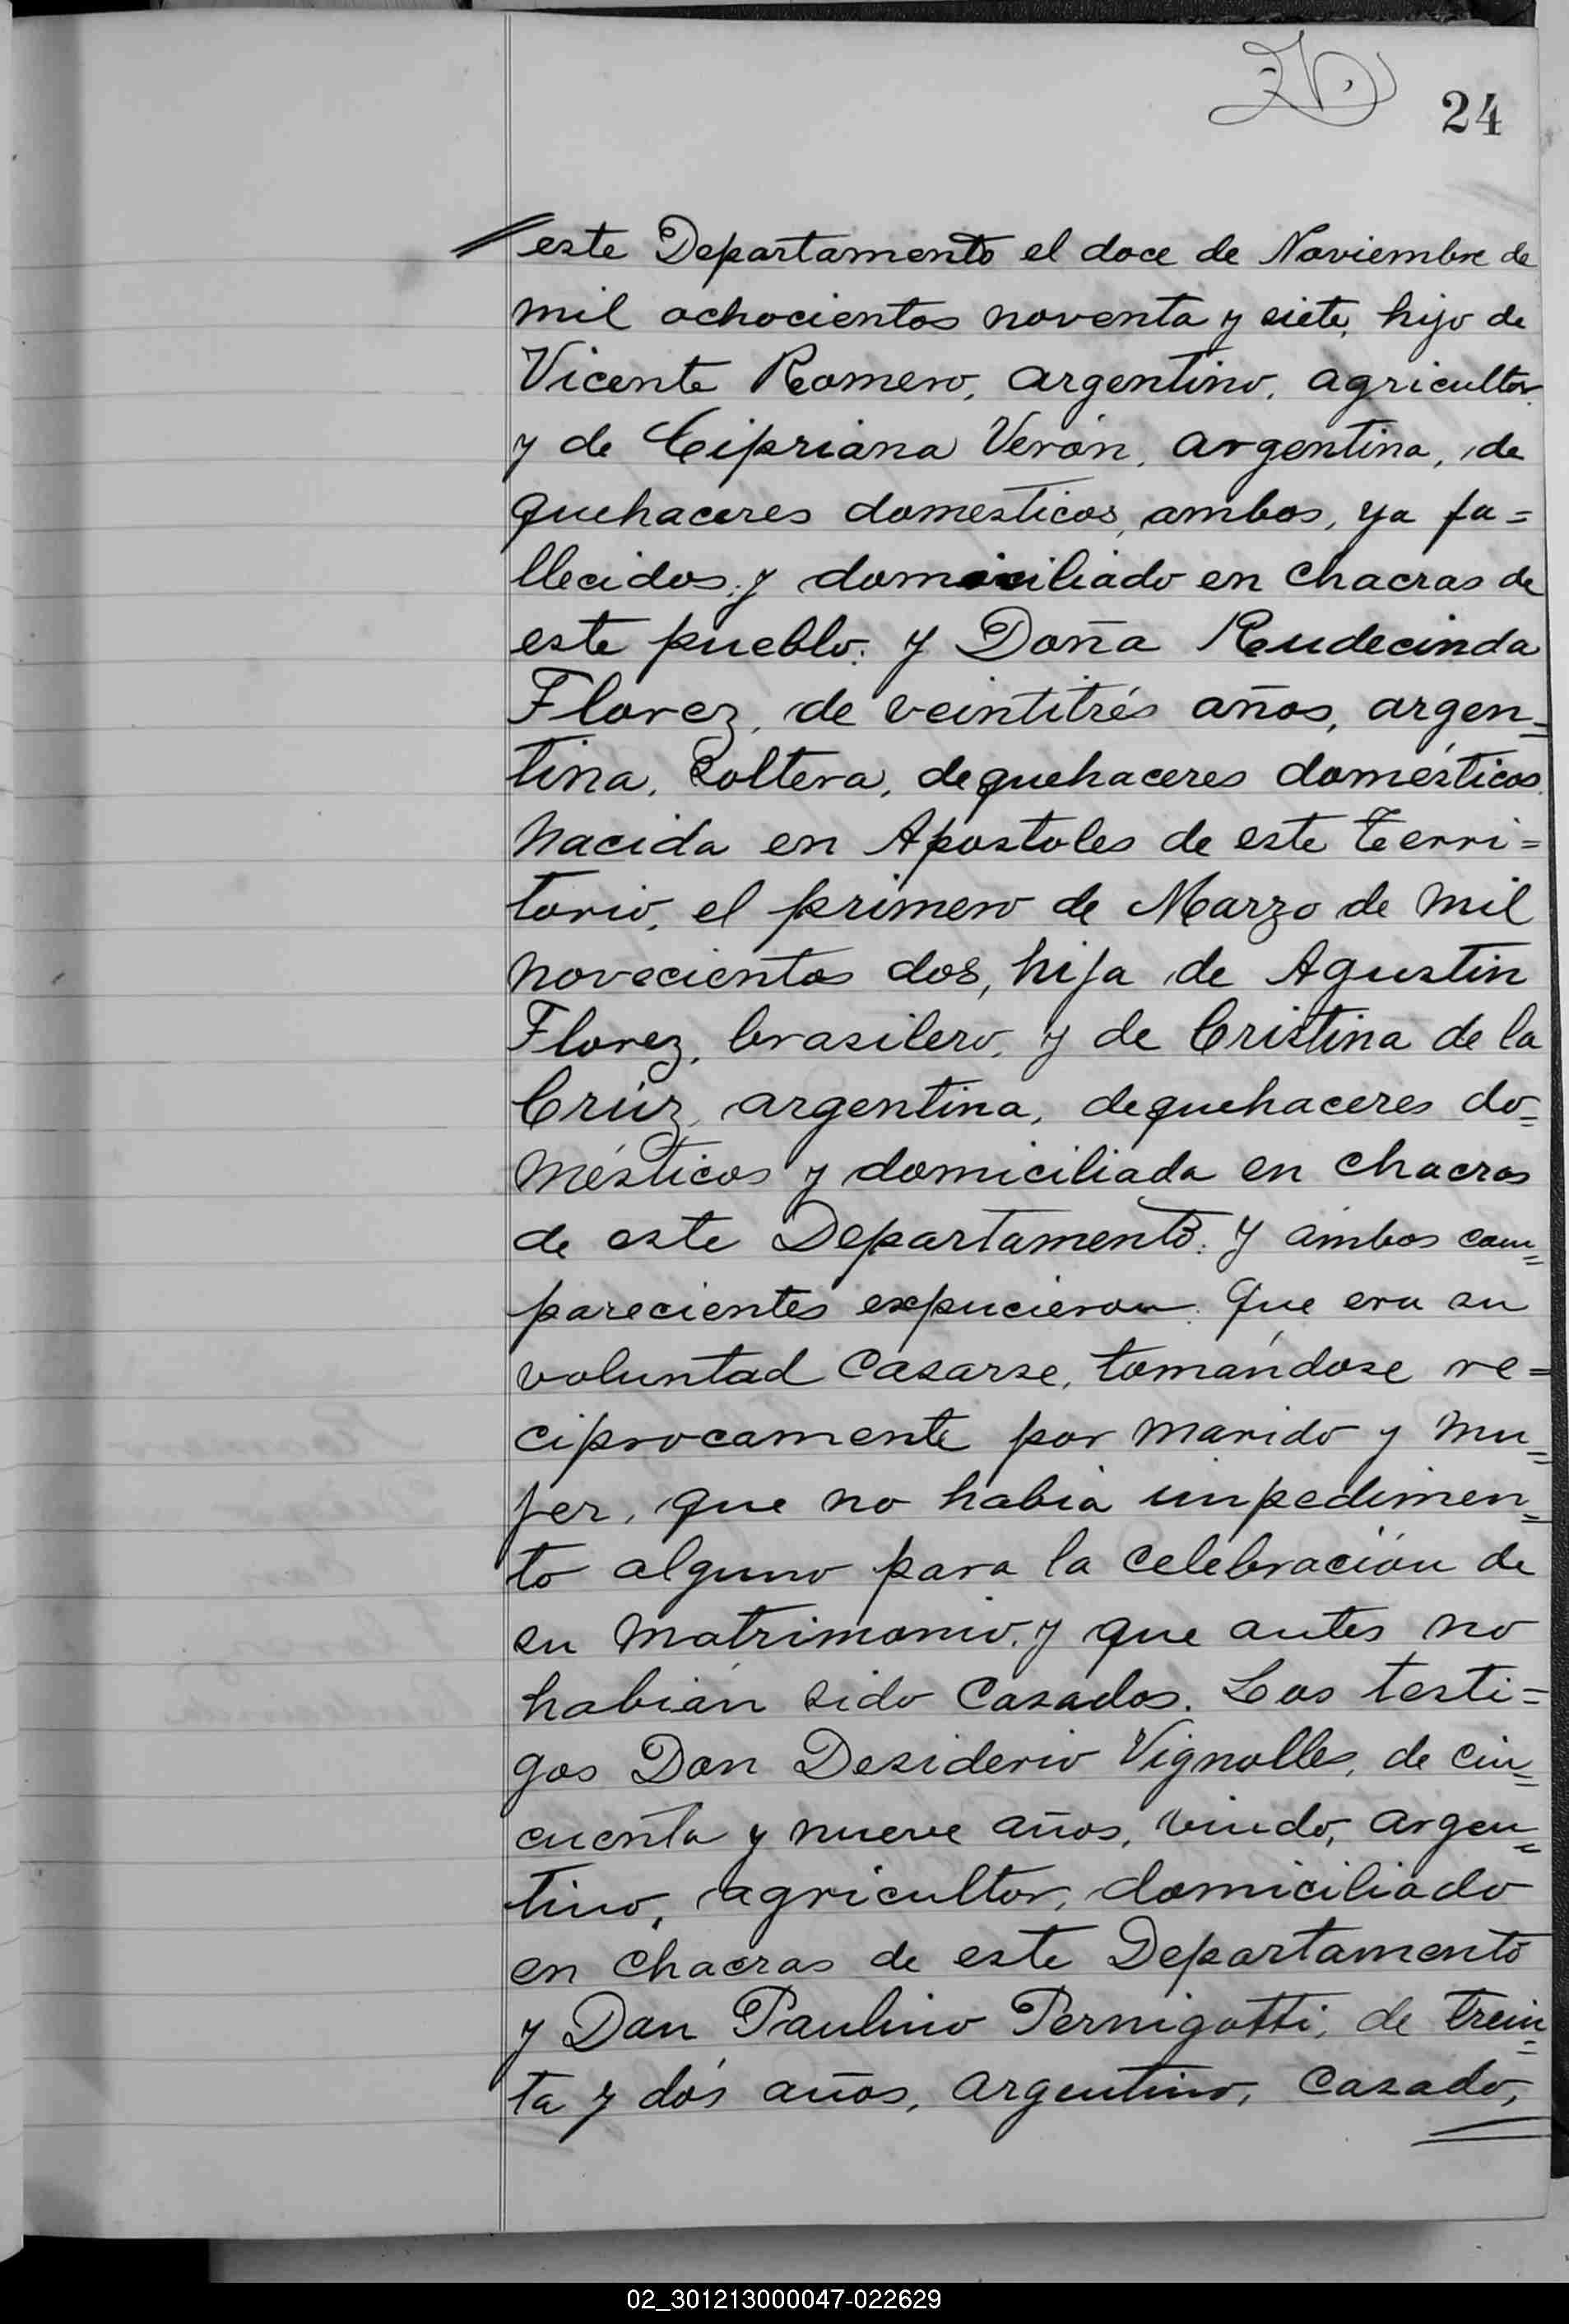 24
este Departamento el doce de Noviembre de
mil ochocientos noventa y siete, hijo de
Vicente Romero, argentino, agricultor
y de Cipriana Verón, argentina, de
quehaceres domesticos, ambos, ya fa=
llecidos y domiciliado en chacras de
este pueblo: y Doña Reudecinda
Florez, de veintitrés años, argen=
tina, Soltera, de quehaceres domésticos
nacida en Apostoles de este Terri=
torio, el primero de Marzo de mil
novecientos dos, hija de Agustin
Florez, brasilero, y de Cristina de la
Crúz, argentina, de quehaceres do=
mésticos y domiciliada en chacras
de este Departamento: Y ambos com=
parecientes expucieron: Que era su
voluntad Casarse, tomándose re=
ciprocamente por marido y mu=
jer, que no habia impedimen=
to alguno para la celebración de
su matrimonio, y que antes no
habián sido Casados. Los testi=
gos Don Desiderio Vignolles, de cin=
cuenta y nueve años, viudo, argen=
tino, agricultor, domiciliado
en chacras de este Departamento
y Don Paulino Pernigotti, de trein=
ta y dos años, argentino, Casado,
02_301213000047-022629